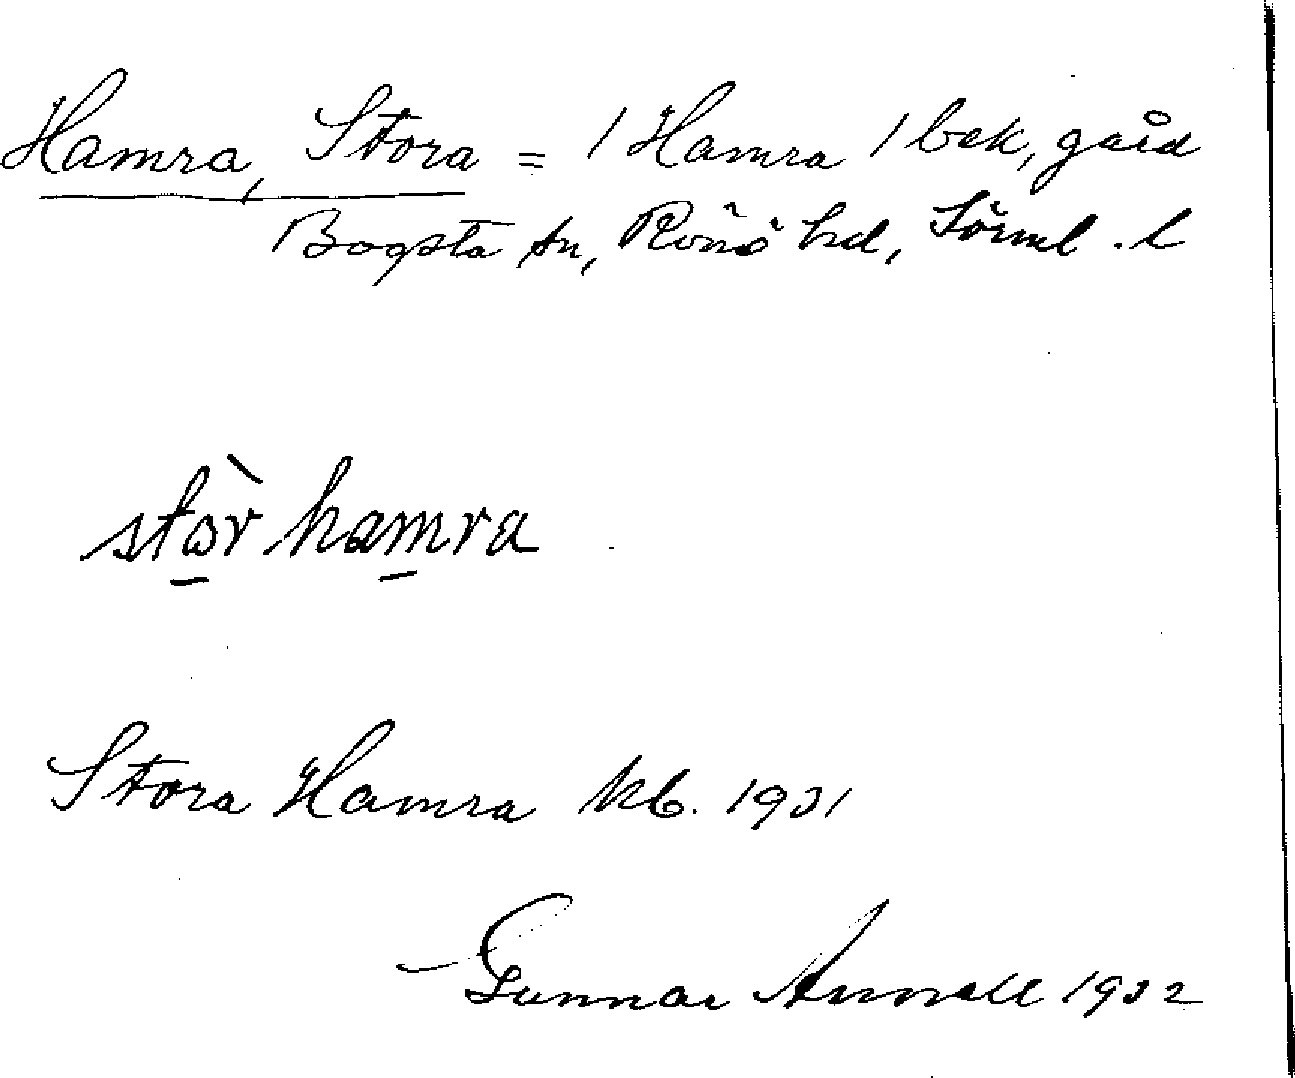 Hamra, Stora = / Hamra / bek, gård
Bogsta sn, Rönö hd, Sörml. l
stòr hamra
Stora Hamra kb. 1931
Gunnar 1932